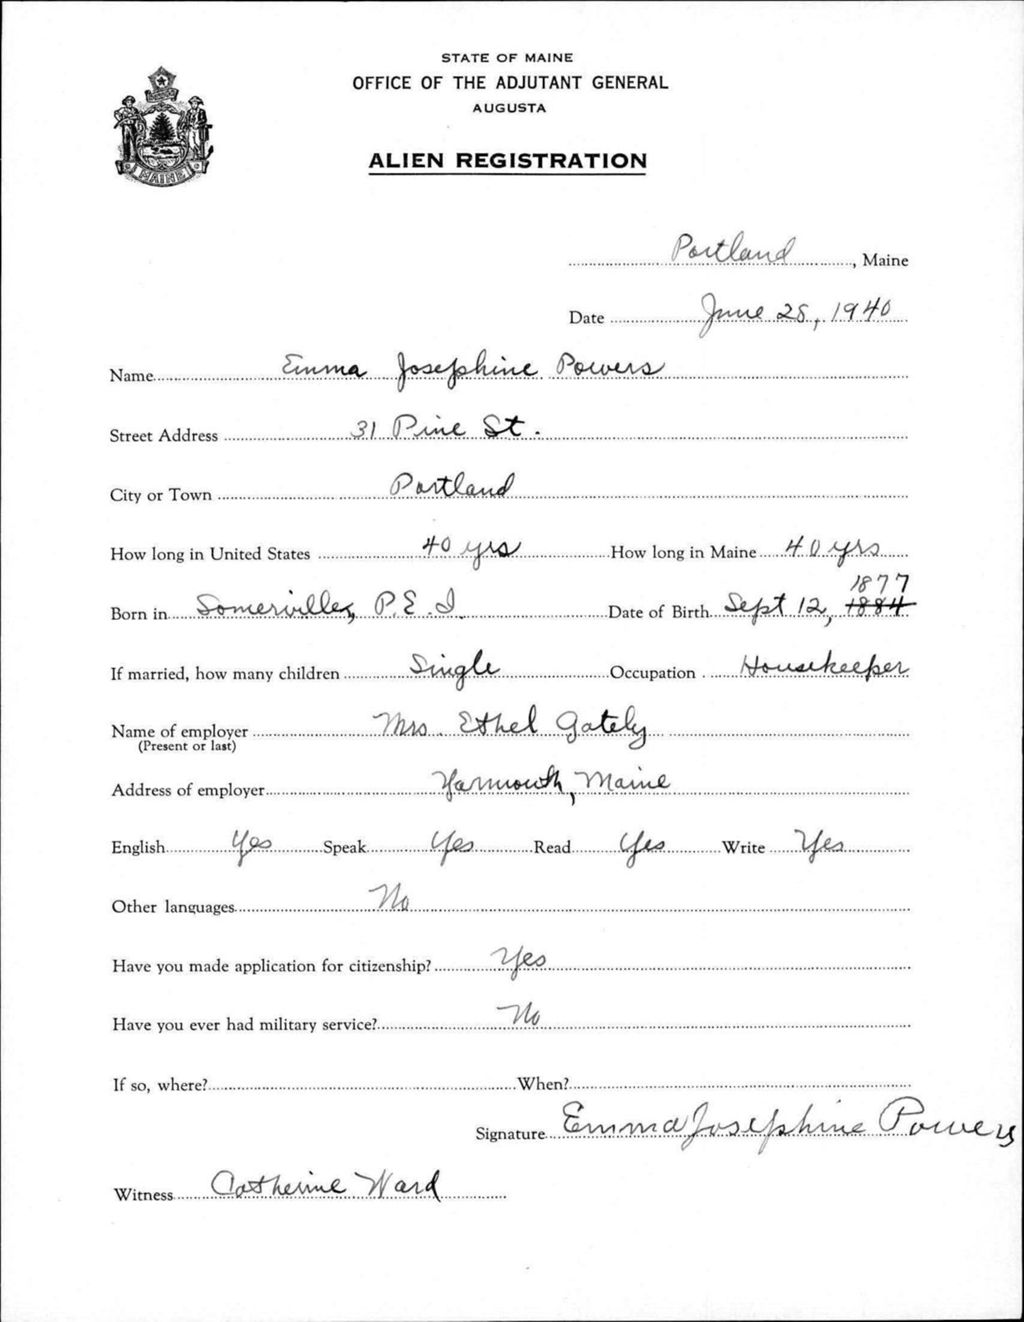 STATE OF MAINE
OFFICE OF THE ADJUTANT GENERAL
AUGUSTA
ALIEN REGISTRATION
MAINE
Portland, Maine
Date June 28, 1940
Name Emma Josephine Powers
Street Address 31 Pine St.
City or Town Portland
How long in United States 40 yrs How long in Maine 40 yrs
1877
Born in Somerville, P.E.I. Date of Birth Sept 12, 1884
If married, how many children Single Occupation Housekeeper
Name of employer Mrs. Ethel Gately
(Present or last)
Address of employer Yarmouth, Maine
English Yes Speak Yes Read Yes Write Yes
Other languages No
Have you made application for citizenship? Yes
Have you ever had military service? No
If so, where? When?
Signature Emma Josephine Powers
Witness Catherine Ward